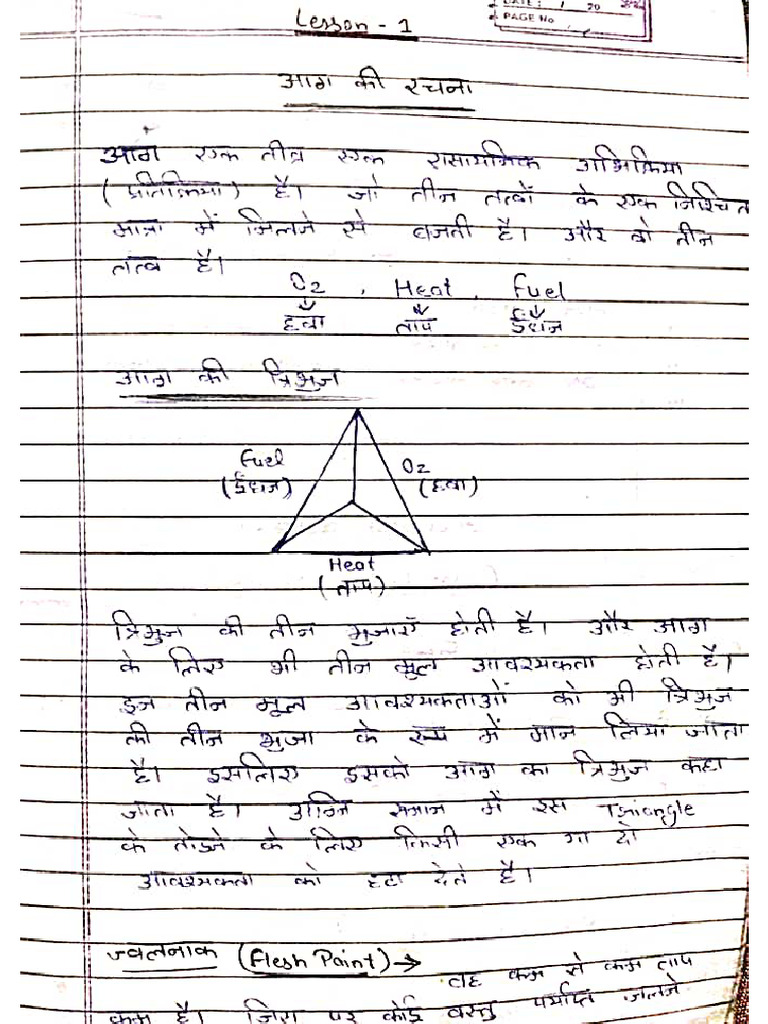 Lesson - 1
DATE: / 20
PAGE No
आग की रचना
आग एक तीव्र एक रासायनिक अभिक्रिया
(प्रतिक्रिया) है। जो तीन तत्वों के एक निश्चित
मात्रा में मिलने से बनती है। और वो तीन
तत्व है।
O2 , Heat , Fuel
हवा ताप ईंधन
आग की त्रिभुज
Fuel
(ईंधन)
O2
(हवा)
Heat
(ताप)
त्रिभुज की तीन भुजाएँ होती है। और आग
के लिए भी तीन मूल आवश्यकता होती है।
इन तीन मूल आवश्यकताओं को भी त्रिभुज
की तीन भुजा के रूप में मान लिया जाता
है। इसलिए इसको आग का त्रिभुज कहा
जाता है। अग्नि समान में इस Triangle
के तोडने के लिए किसी एक या दो
आवश्यकता को हटा देते है।
ज्वलनाक (Flesh Point) →
वह कम से कम ताप
क्रम है। जिस पर कोई वस्तु पर्याप्त जलने